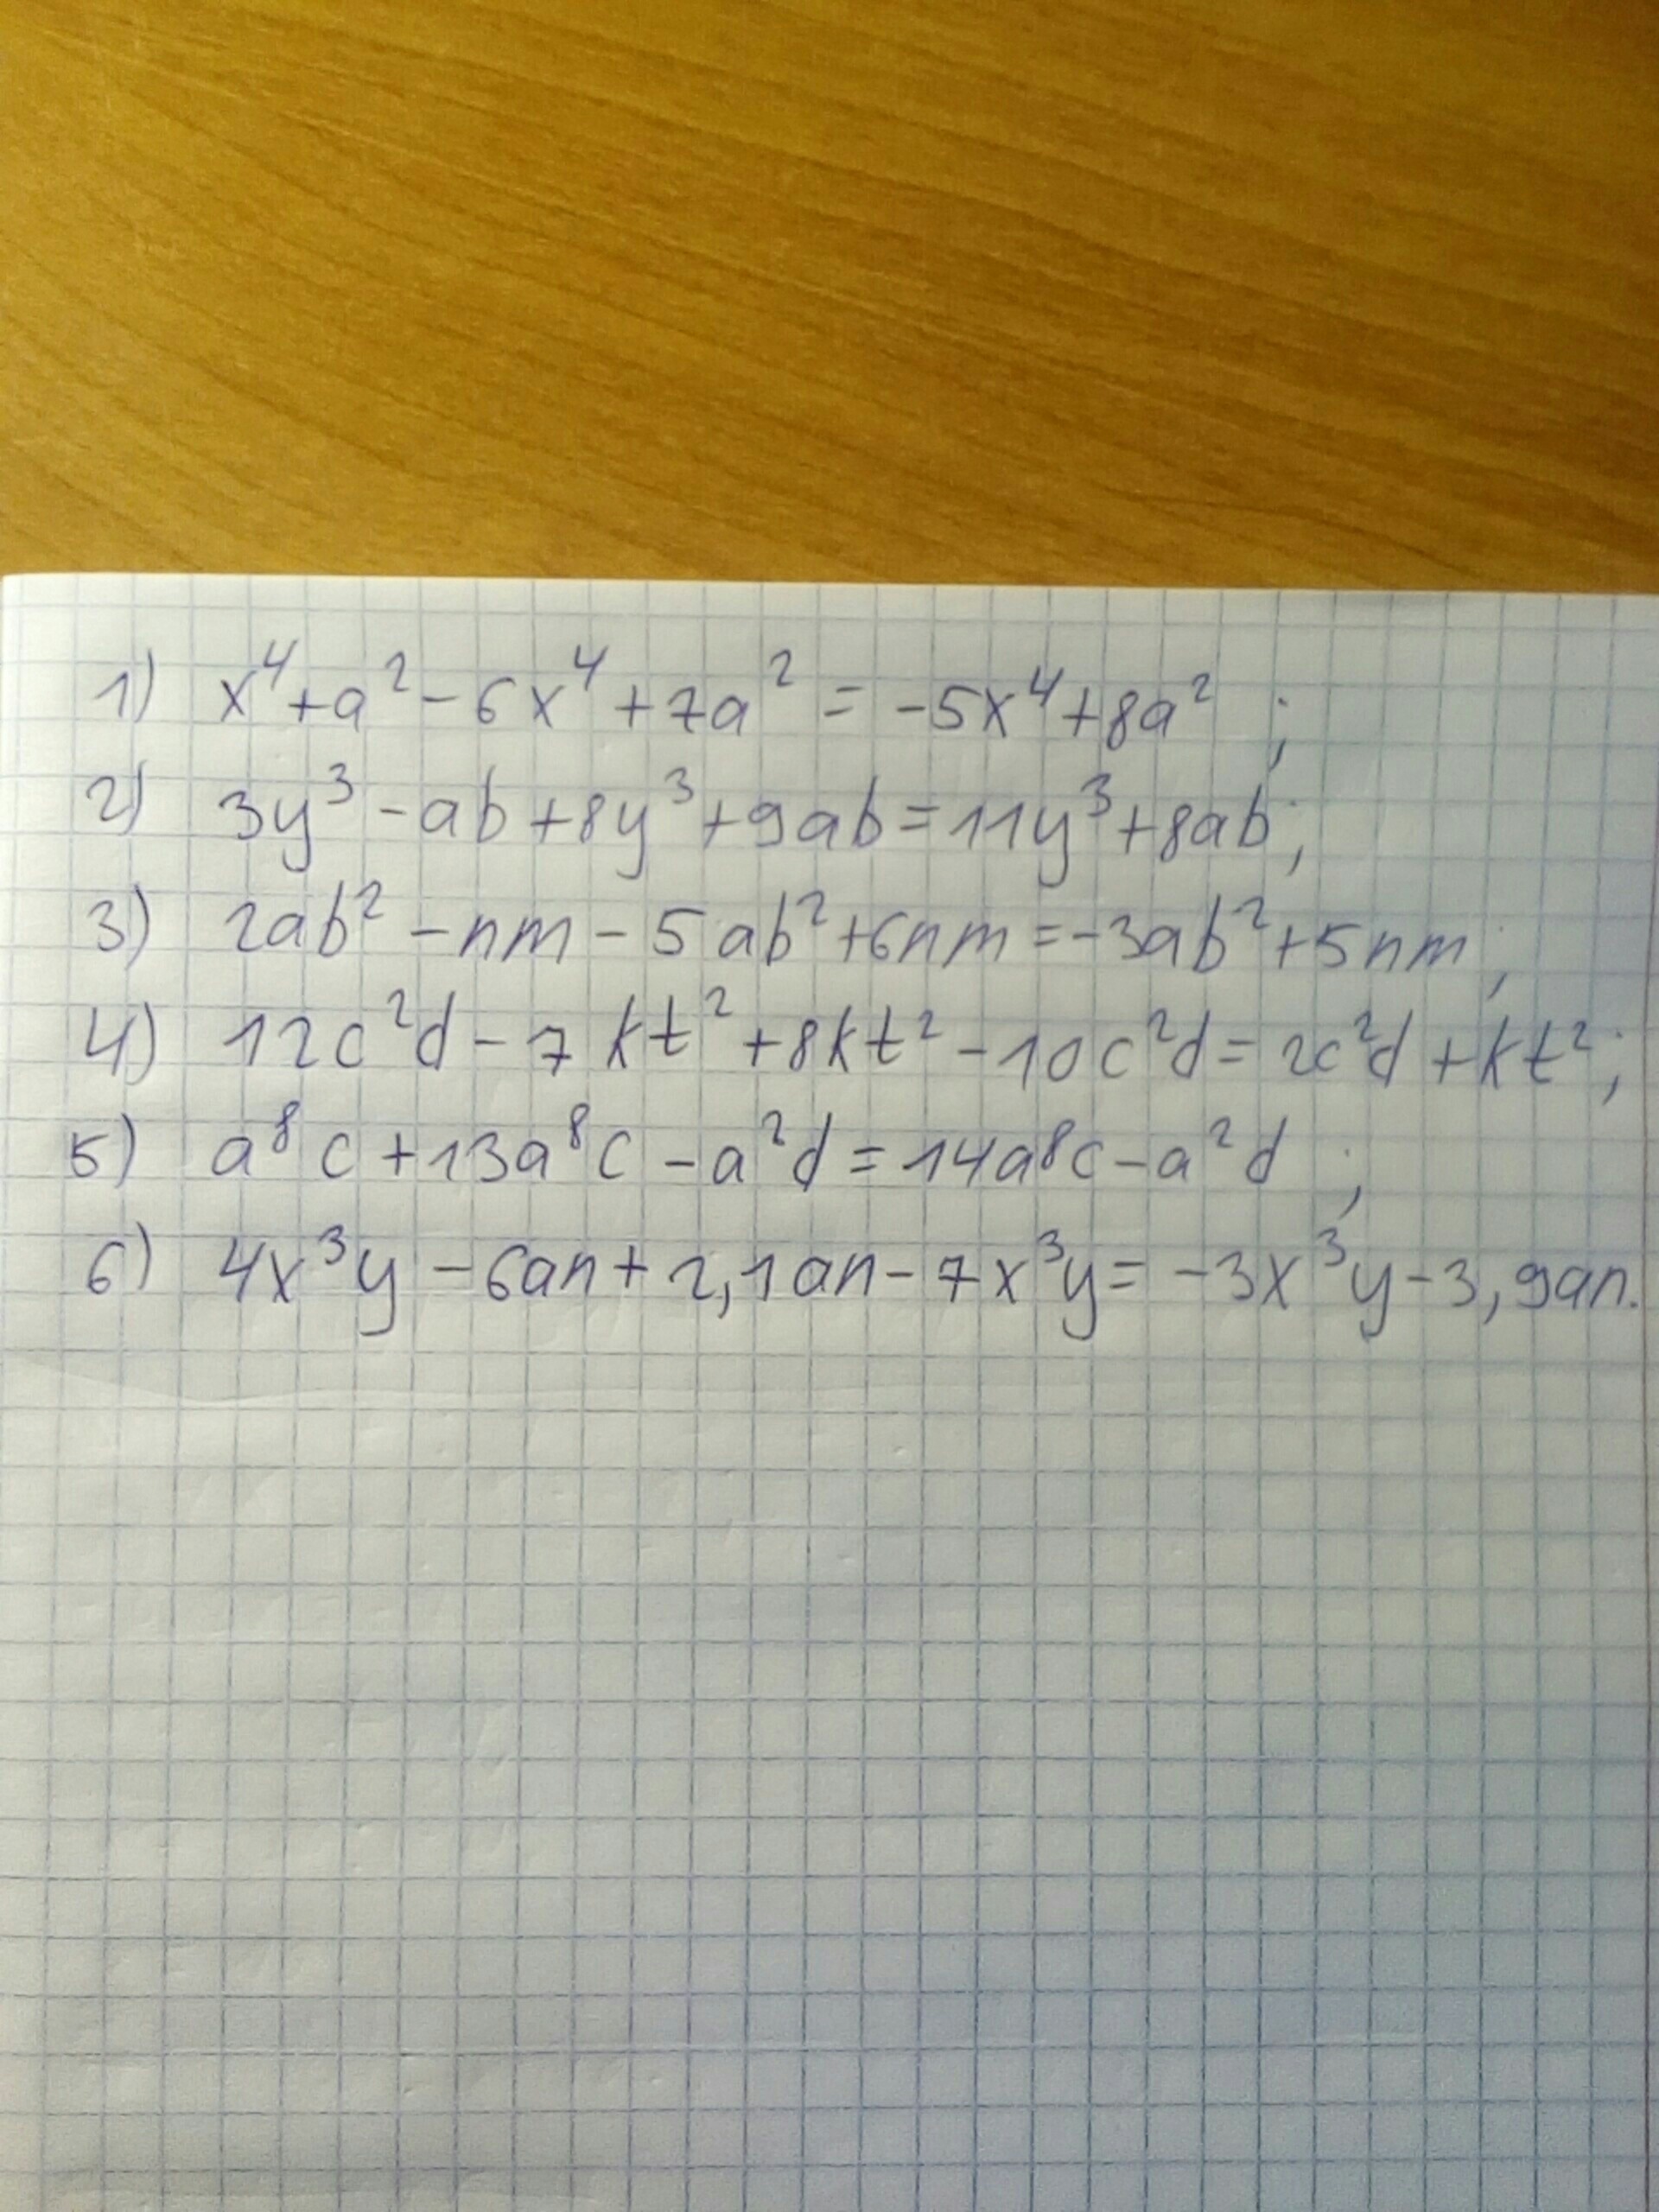 1) x⁴+a²-6x⁴+7a² = -5x⁴+8a² ;
2) 3y³-ab+8y³+9ab=11y³+8ab;
3) 2ab²-nm-5ab²+6nm=-3ab²+5nm;
4) 12c²d-7kt²+8kt²-10c²d=2c²d+kt²;
5) a⁸c+13a⁸c-a²d=14a⁸c-a²d ;
6) 4x³y-6an+2,1an-7x³y=-3x³y-3,9an.